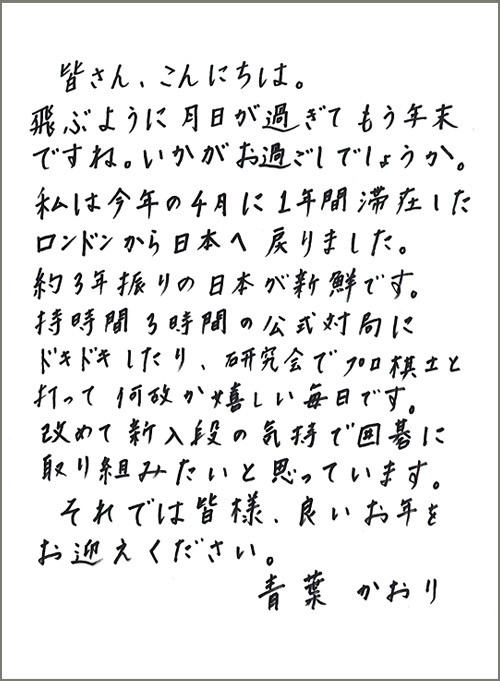 皆さん、こんにちは。
飛ぶように月日が過ぎてもう年末
ですね。いかがお過ごしでしょうか。
私は今年の4月に1年間滞在した
ロンドンから日本へ戻りました。
約3年振りの日本が新鮮です。
持時間3時間の公式対局に
ドキドキしたり、研究会でプロ棋士と
打って何故か嬉しい毎日です。
改めて新入段の気持で囲碁に
取り組みたいと思っています。
それでは皆様、良いお年を
お迎えください。
青葉 かおり